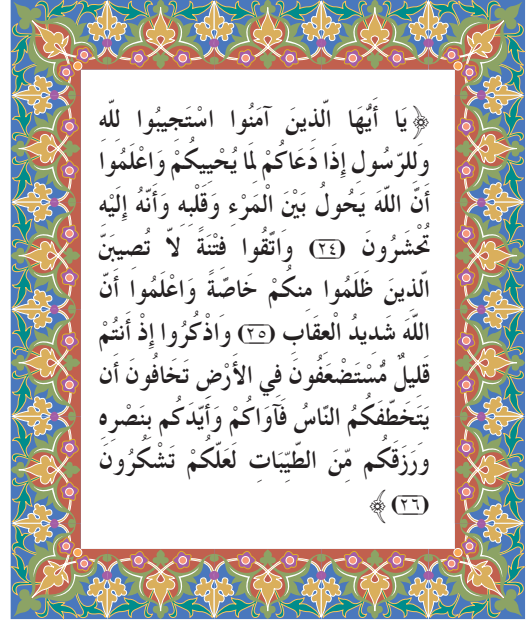 ﴿يَا أَيُّهَا الَّذينَ آمَنُوا اسْتَجيبُوا للَّه
وللرَّسُول إِذَا دَعَاكُمْ لمَا يُحْييكُمْ وَاعْلَمُوا
أَنَّ اللَّهَ يَحُولُ بَيْنَ الْمَرْء وَقَلْبه وَأَنَّهُ إلَيْه
تُحْشرُونَ (٢٤) وَاتَّقُوا فتْنَةً لاَّ تُصيبَنَّ
الَّذينَ ظَلَمُوا منكُمْ خَاصَّةً وَاعْلَمُوا أَنَّ
اللَّهَ شَديدُ الْعقَاب (٢٥) وَاذْكُرُوا إذْ أَنتُمْ
قَليلٌ مُّسْتَضْعَفُونَ في الأَرْض تَخَافُونَ أَن
يَتَخَطَّفَكُمُ النَّاسُ فَآوَاكُمْ وَأَيَّدَكُم بنَصْره
وَرَزَقَكُم مِّنَ الطَّيِّبَات لَعَلَّكُمْ تَشْكُرُونَ
(٢٦) ﴾